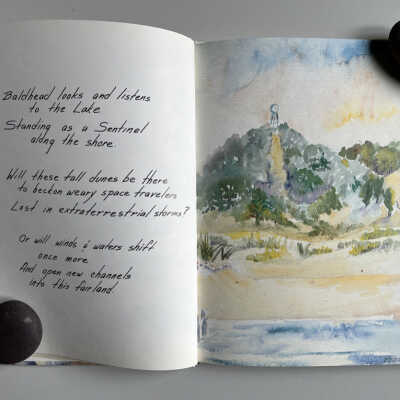 Baldhead looks and listens
to the Lake
Standing as a Sentinel
along the shore.
Will these tall dunes be there
to beckon weary space travelers
Lost in extraterrestrial storms?
Or will winds & waters shift
once more
And open new channels
into this fair land.